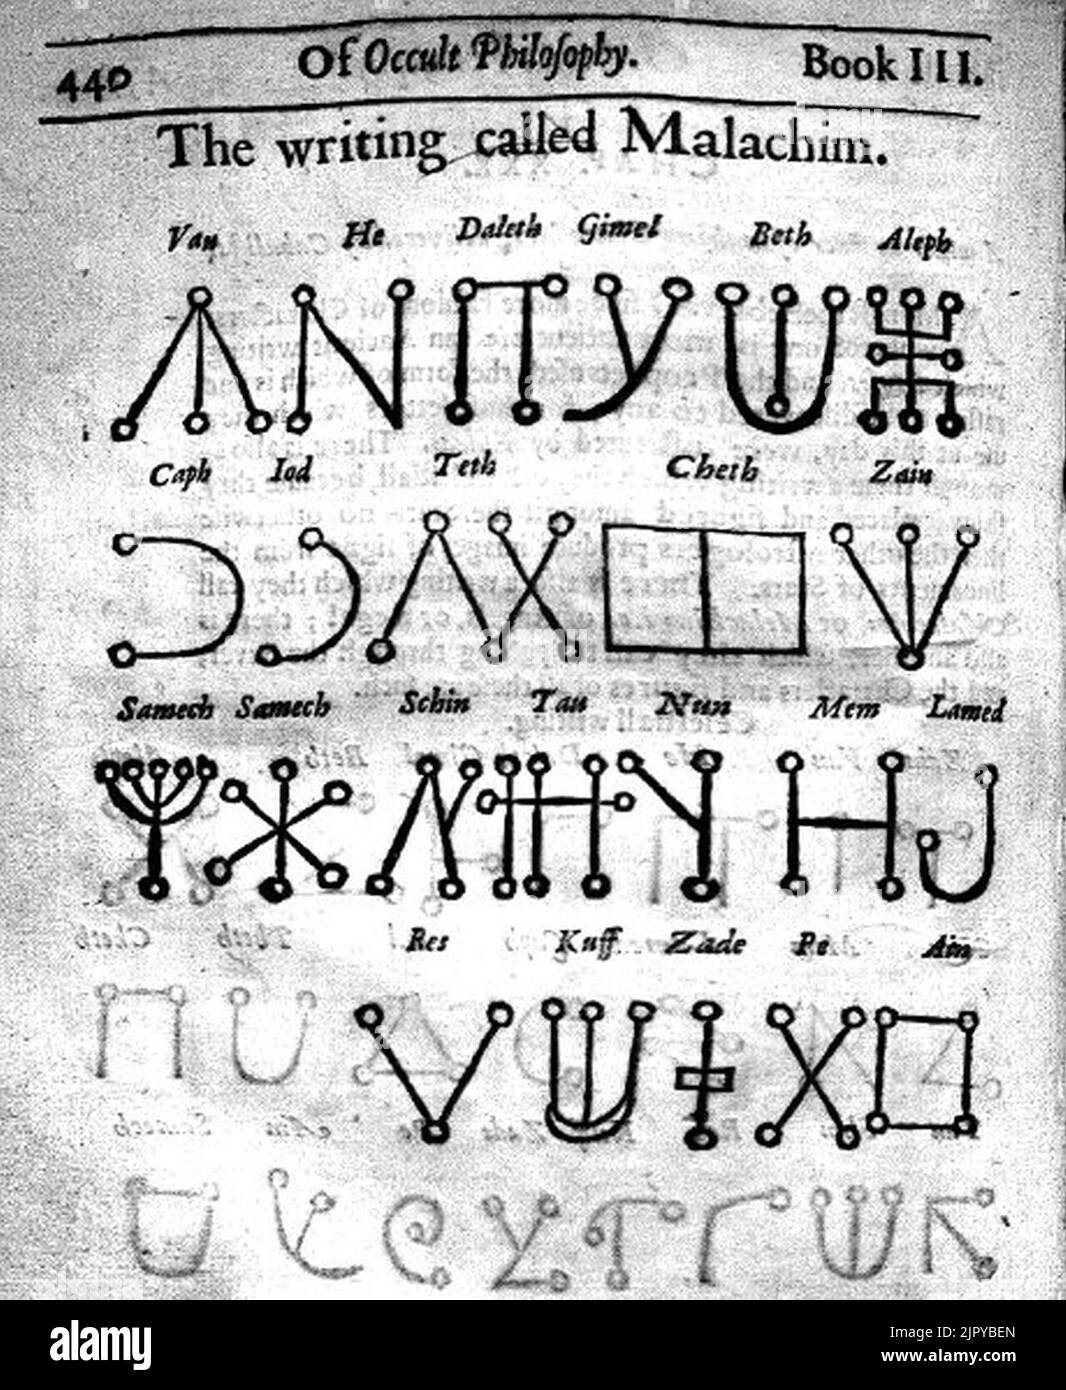 440 Of Occult Philoſophy. Book III.
The writing called Malachim.
Vau He Daleth Gimel Beth Aleph
Caph Iod Teth Cheth Zain
Samech Samech Schin Tau Nun Mem Lamed
Res Kuff Zade Pe Ain
alamy
Image ID: 2JPYBEN
www.alamy.com